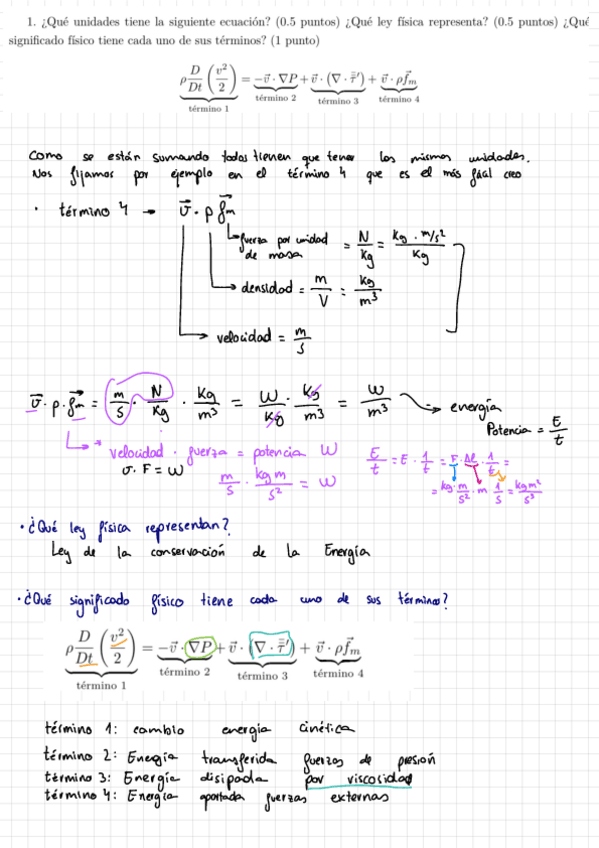 1. ¿Qué unidades tiene la siguiente ecuación? (0.5 puntos) ¿Qué ley física representa? (0.5 puntos) ¿Qué
significado físico tiene cada uno de sus términos? (1 punto)
ρ D/Dt (v²/2) = −v⃗ · ∇P + v⃗ · (∇ · τ̿′) + v⃗ · ρf⃗ₘ
término 1 término 2 término 3 término 4
Como se están sumando todos tienen que tener las mismas unidades.
Nos fijamos por ejemplo en el término 4 que es el más fácil creo
· término 4 → v⃗ · ρ f⃗ₘ
fuerza por unidad de masa = N/kg = kg · m/s² / kg
densidad = m/V = kg/m³
velocidad = m/s
v⃗ · ρ · f⃗ₘ = m/s · N/kg · kg/m³ = W/kg · kg/m³ = W/m³ → energía
Potencia = E/t
* velocidad · fuerza = potencia W
v · F = W
m/s · kg m/s² = W
E/t = E · 1/t = F · Δl · 1/t =
= kg · m/s² · m · 1/s = kg m²/s³
· ¿Qué ley física representan?
Ley de la conservación de la Energía
· ¿Qué significado físico tiene cada uno de sus términos?
ρ D/Dt (v²/2) = −v⃗ · ∇P + v⃗ · (∇ · τ̿′) + v⃗ · ρf⃗ₘ
término 1 término 2 término 3 término 4
término 1: cambio energia cinética
término 2: Energía transferida fuerzas de presión
término 3: Energía disipada por viscosidad
término 4: Energía aportada fuerzas externas